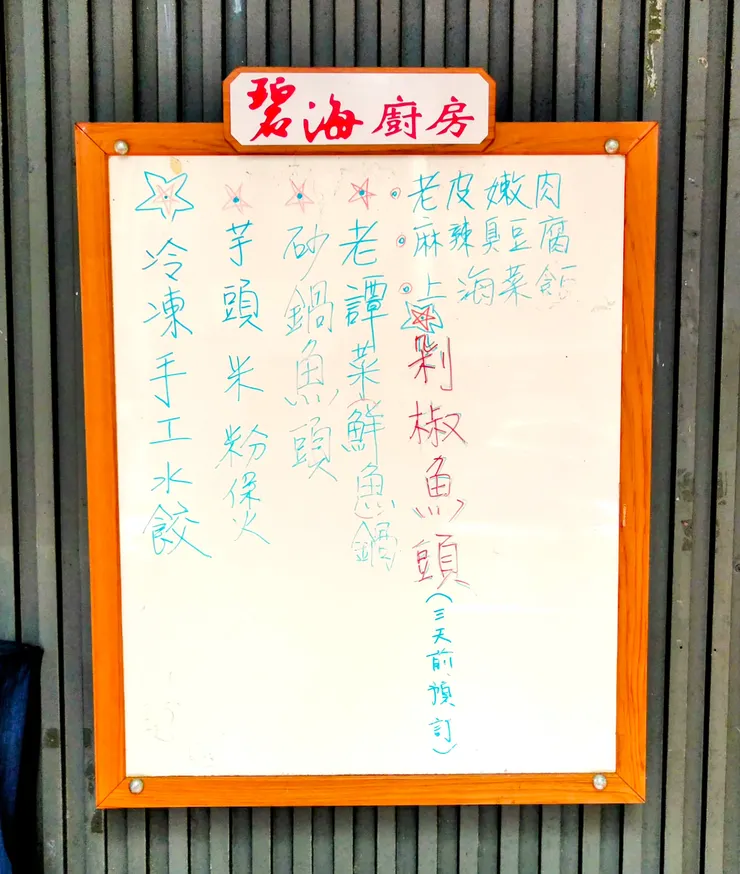 碧海廚房
老皮嫩肉
麻辣臭豆腐
上海菜飯
剁椒魚頭
(三天前預訂)
老譚菜鮮魚鍋
砂鍋魚頭
芋頭米粉煲
冷凍手工水餃